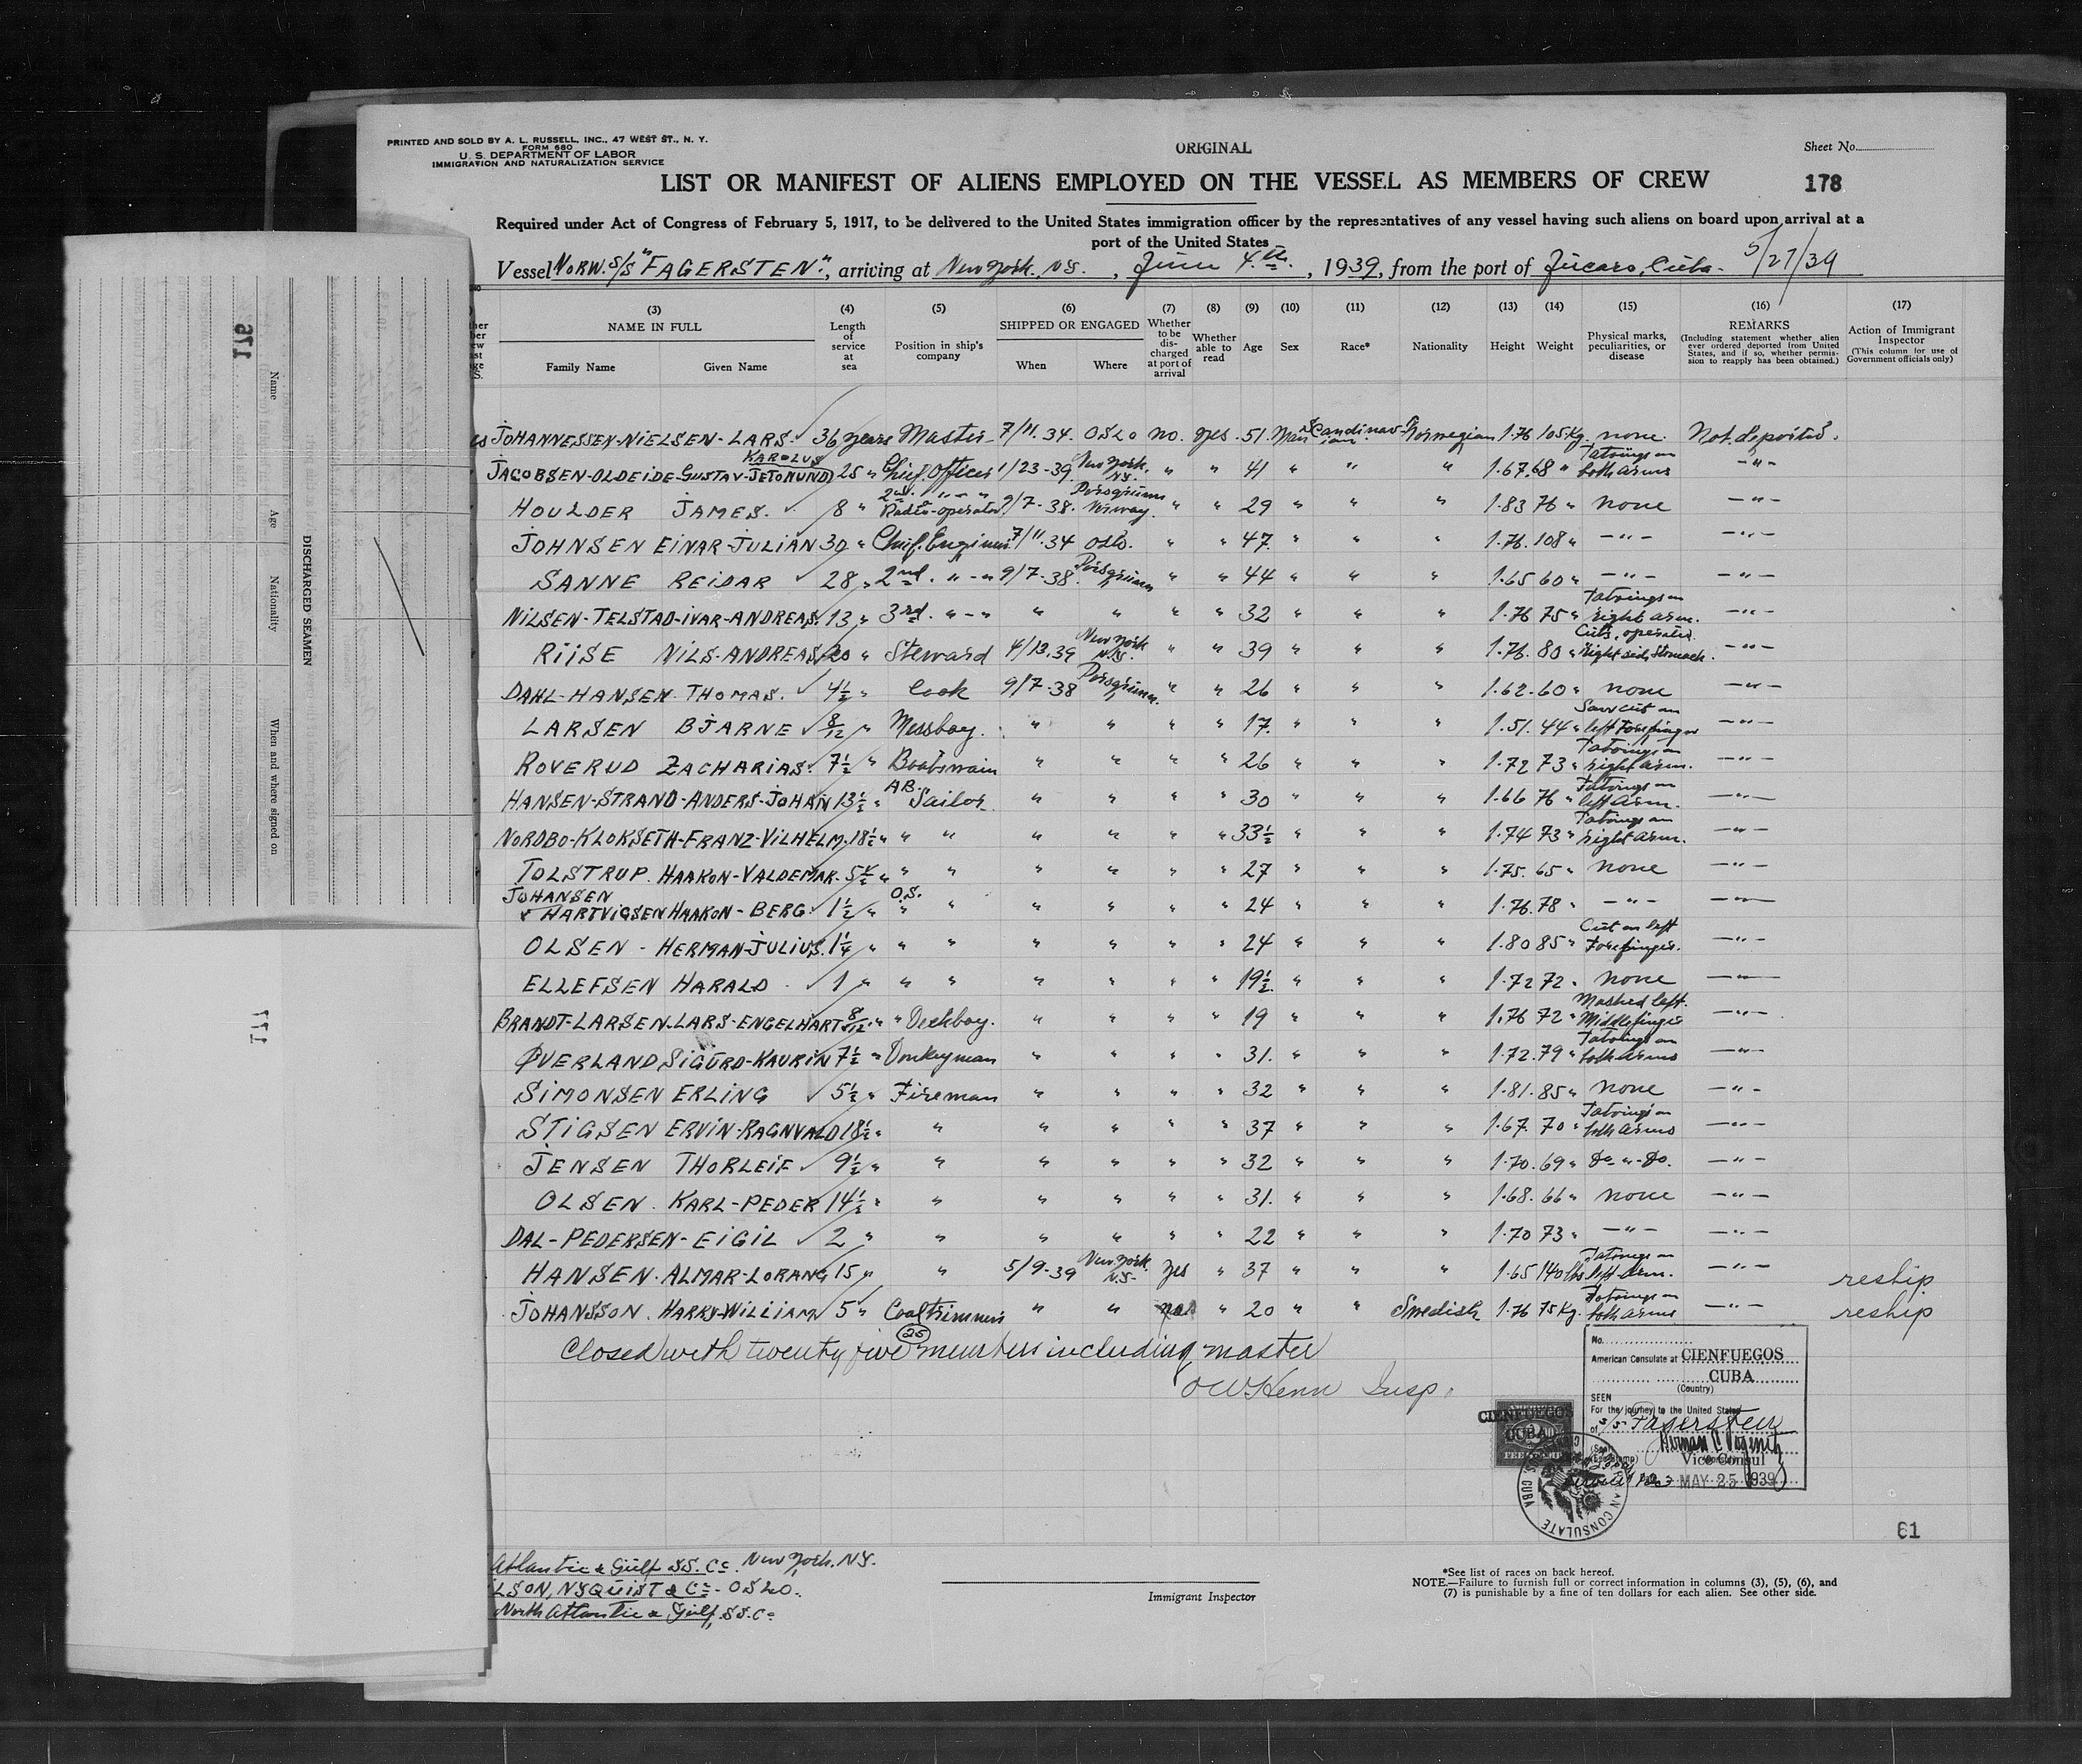 PRINTED AND SOLD BY A. L. RUSSELL, INC., 47 WEST ST., N. Y.
FORM 680
U. S. DEPARTMENT OF LABOR
IMMIGRATION AND NATURALIZATION SERVICE
ORIGINAL
Sheet No.
LIST OR MANIFEST OF ALIENS EMPLOYED ON THE VESSEL AS MEMBERS OF CREW
178
Required under Act of Congress of February 5, 1917, to be delivered to the United States immigration officer by the representatives of any vessel having such aliens on board upon arrival at a
port of the United States
Vessel NORW. S/S "FAGERSTEN", arriving at New York. N.Y., June 4th., 1939, from the port of Jucaro, Cuba. 5/27/39
(3) NAME IN FULL Family Name Given Name
(4) Length of service at sea
(5) Position in ship's company
(6) SHIPPED OR ENGAGED When Where
(7) Whether to be discharged at port of arrival
(8) Whether able to read
(9) Age
(10) Sex
(11) Race*
(12) Nationality
(13) Height
(14) Weight
(15) Physical marks, peculiarities, or disease
(16) REMARKS (Including statement whether alien ever ordered deported from United States, and if so, whether permission to reapply has been obtained.)
(17) Action of Immigrant Inspector (This column for use of Government officials only)
JOHANNESSEN-NIELSEN-LARS. 36 years Master 7/11.34. OSLO no. yes. 51. Man Scandinavian Norwegian 1.76 105 Kg. none. Not deported.
JACOBSEN-OLDEIDE-GUSTAV-JETOMUND KAROLUS 25 " Chief. Officer 1/23-39. New York. N.Y. " " 41 " " " 1.67. 68 " Tatoings on both arms -"-
HOULDER JAMES. 8 " 2nd. "-" Radio-operator. 9/7-38. Porsgrunn Norway. " " 29 " " " 1.83 76 " none -"-
JOHNSEN EINAR-JULIAN 30 " Chief. Engineer 7/11.34 OSLO. " " 47. " " " 1.76. 108 " -"- -"-
SANNE REIDAR 28 " 2nd. "-" 9/7-38. Porsgrunn " " 44 " " " 1.65 60 " -"- -"-
NILSEN-TELSTAD-IVAR-ANDREAS 13 " 3rd. "-" " " " " 32 " " " 1.76 75 " Tatoings on right arm. -"-
RIISE NILS-ANDREAS 20 " Steward 4/13.39 New York N.Y. " " 39 " " " 1.76. 80 " Cuts, operated right side stomach. -"-
DAHL-HANSEN. THOMAS. 4½ " Cook 9/7-38 Porsgrunn. " " 26 " " " 1.62. 60 " none -"-
LARSEN BJARNE 8/12 " Messboy. " " " " 17. " " " 1.51. 44 " Saw cut on left Forefinger -"-
ROVERUD ZACHARIAS. 7½ " Boatswain " " " " 26 " " " 1.72 73 " Tatoings on right arm. -"-
HANSEN-STRAND-ANDERS-JOHAN 13½ " AB. Sailor " " " " 30 " " " 1.66 76 " Tatoings on left arm. -"-
NORDBO-KLOKSETH-FRANZ-VILHELM. 18½ " " " " " " " 33½ " " " 1.74 73 " Tatoings on right arm. -"-
TOLSTRUP. HAAKON-VALDEMAR. 5½ " " " " " " " 27 " " " 1.75. 65 " none -"-
JOHANSEN HARTVIGSEN HAAKON-BERG. 1½ " O.S. " " " " " " 24 " " " 1.76. 78 " -"- -"-
OLSEN - HERMAN-JULIUS. 1¼ " " " " " " " 24 " " " 1.80 85 " Cut on left Forefinger. -"-
ELLEFSEN HARALD 1 " " " " " " " 19½ " " " 1.72 72 " none -"-
BRANDT-LARSEN-LARS-ENGELHART 8/12 " " Deckboy. " " " " 19 " " " 1.76 72 " Mashed left. Middlefinger -"-
ØVERLAND SIGURD-KAURIN 7½ " Donkeyman " " " " 31. " " " 1.72. 79 " Tatoings on both arms -"-
SIMONSEN ERLING 5½ " Fireman " " " " 32 " " " 1.81. 85 " none -"-
STIGSEN ERVIN-RAGNVALD 18½ " " " " " " 37 " " " 1.67. 70 " Tatoings on both arms -"-
JENSEN THORLEIF 9½ " " " " " " 32 " " " 1.70. 69 " Do-"-Do. -"-
OLSEN. KARL-PEDER 14½ " " " " " " 31. " " " 1.68. 66 " none -"-
DAL-PEDERSEN-EIGIL 2 " " " " " " 22 " " " 1.70 73 " -"- -"-
HANSEN. ALMAR-LORANG 15 " " 5/9-39 New York. N.Y- yes " 37 " " " 1.65 140 lbs Tatoings on left arm. -"- reship
JOHANSSON. HARRY-WILLIAM 5 " Coaltrimmer " " " 20 " " Swedish 1.76 75 Kg. Tatoings on both arms -"- reship
Closed with twenty five (25) members including master
Insp.
No.
American Consulate at CIENFUEGOS
CUBA
(Country)
SEEN
For the journey to the United States
of S/S Fagersten
Vice Consul
MAY 25 1939
CIENFUEGOS
CUBA
FEE STAMP
61
Atlantic & Gulf SS. Co. New York. N.Y.
LSON, NYQUIST & Co- OSLO.
North Atlantic & Gulf. S.S. Co
Immigrant Inspector
*See list of races on back hereof.
NOTE.—Failure to furnish full or correct information in columns (3), (5), (6), and
(7) is punishable by a fine of ten dollars for each alien. See other side.
176
Name
Age
Nationality
When and where signed on
DISCHARGED SEAMEN
177